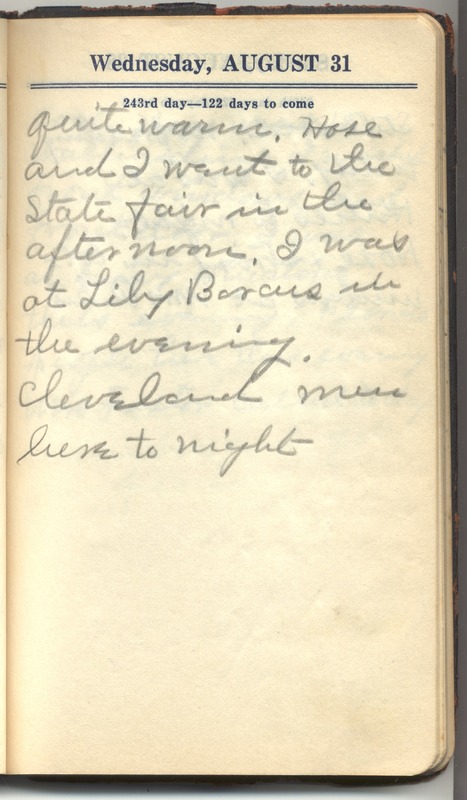 Wednesday, AUGUST 31
243rd day—122 days to come
quite warm. Hose
and I went to the
State fair in the
afternoon. I was
at Lily Borcus in
the evening.
Cleveland men
here to night